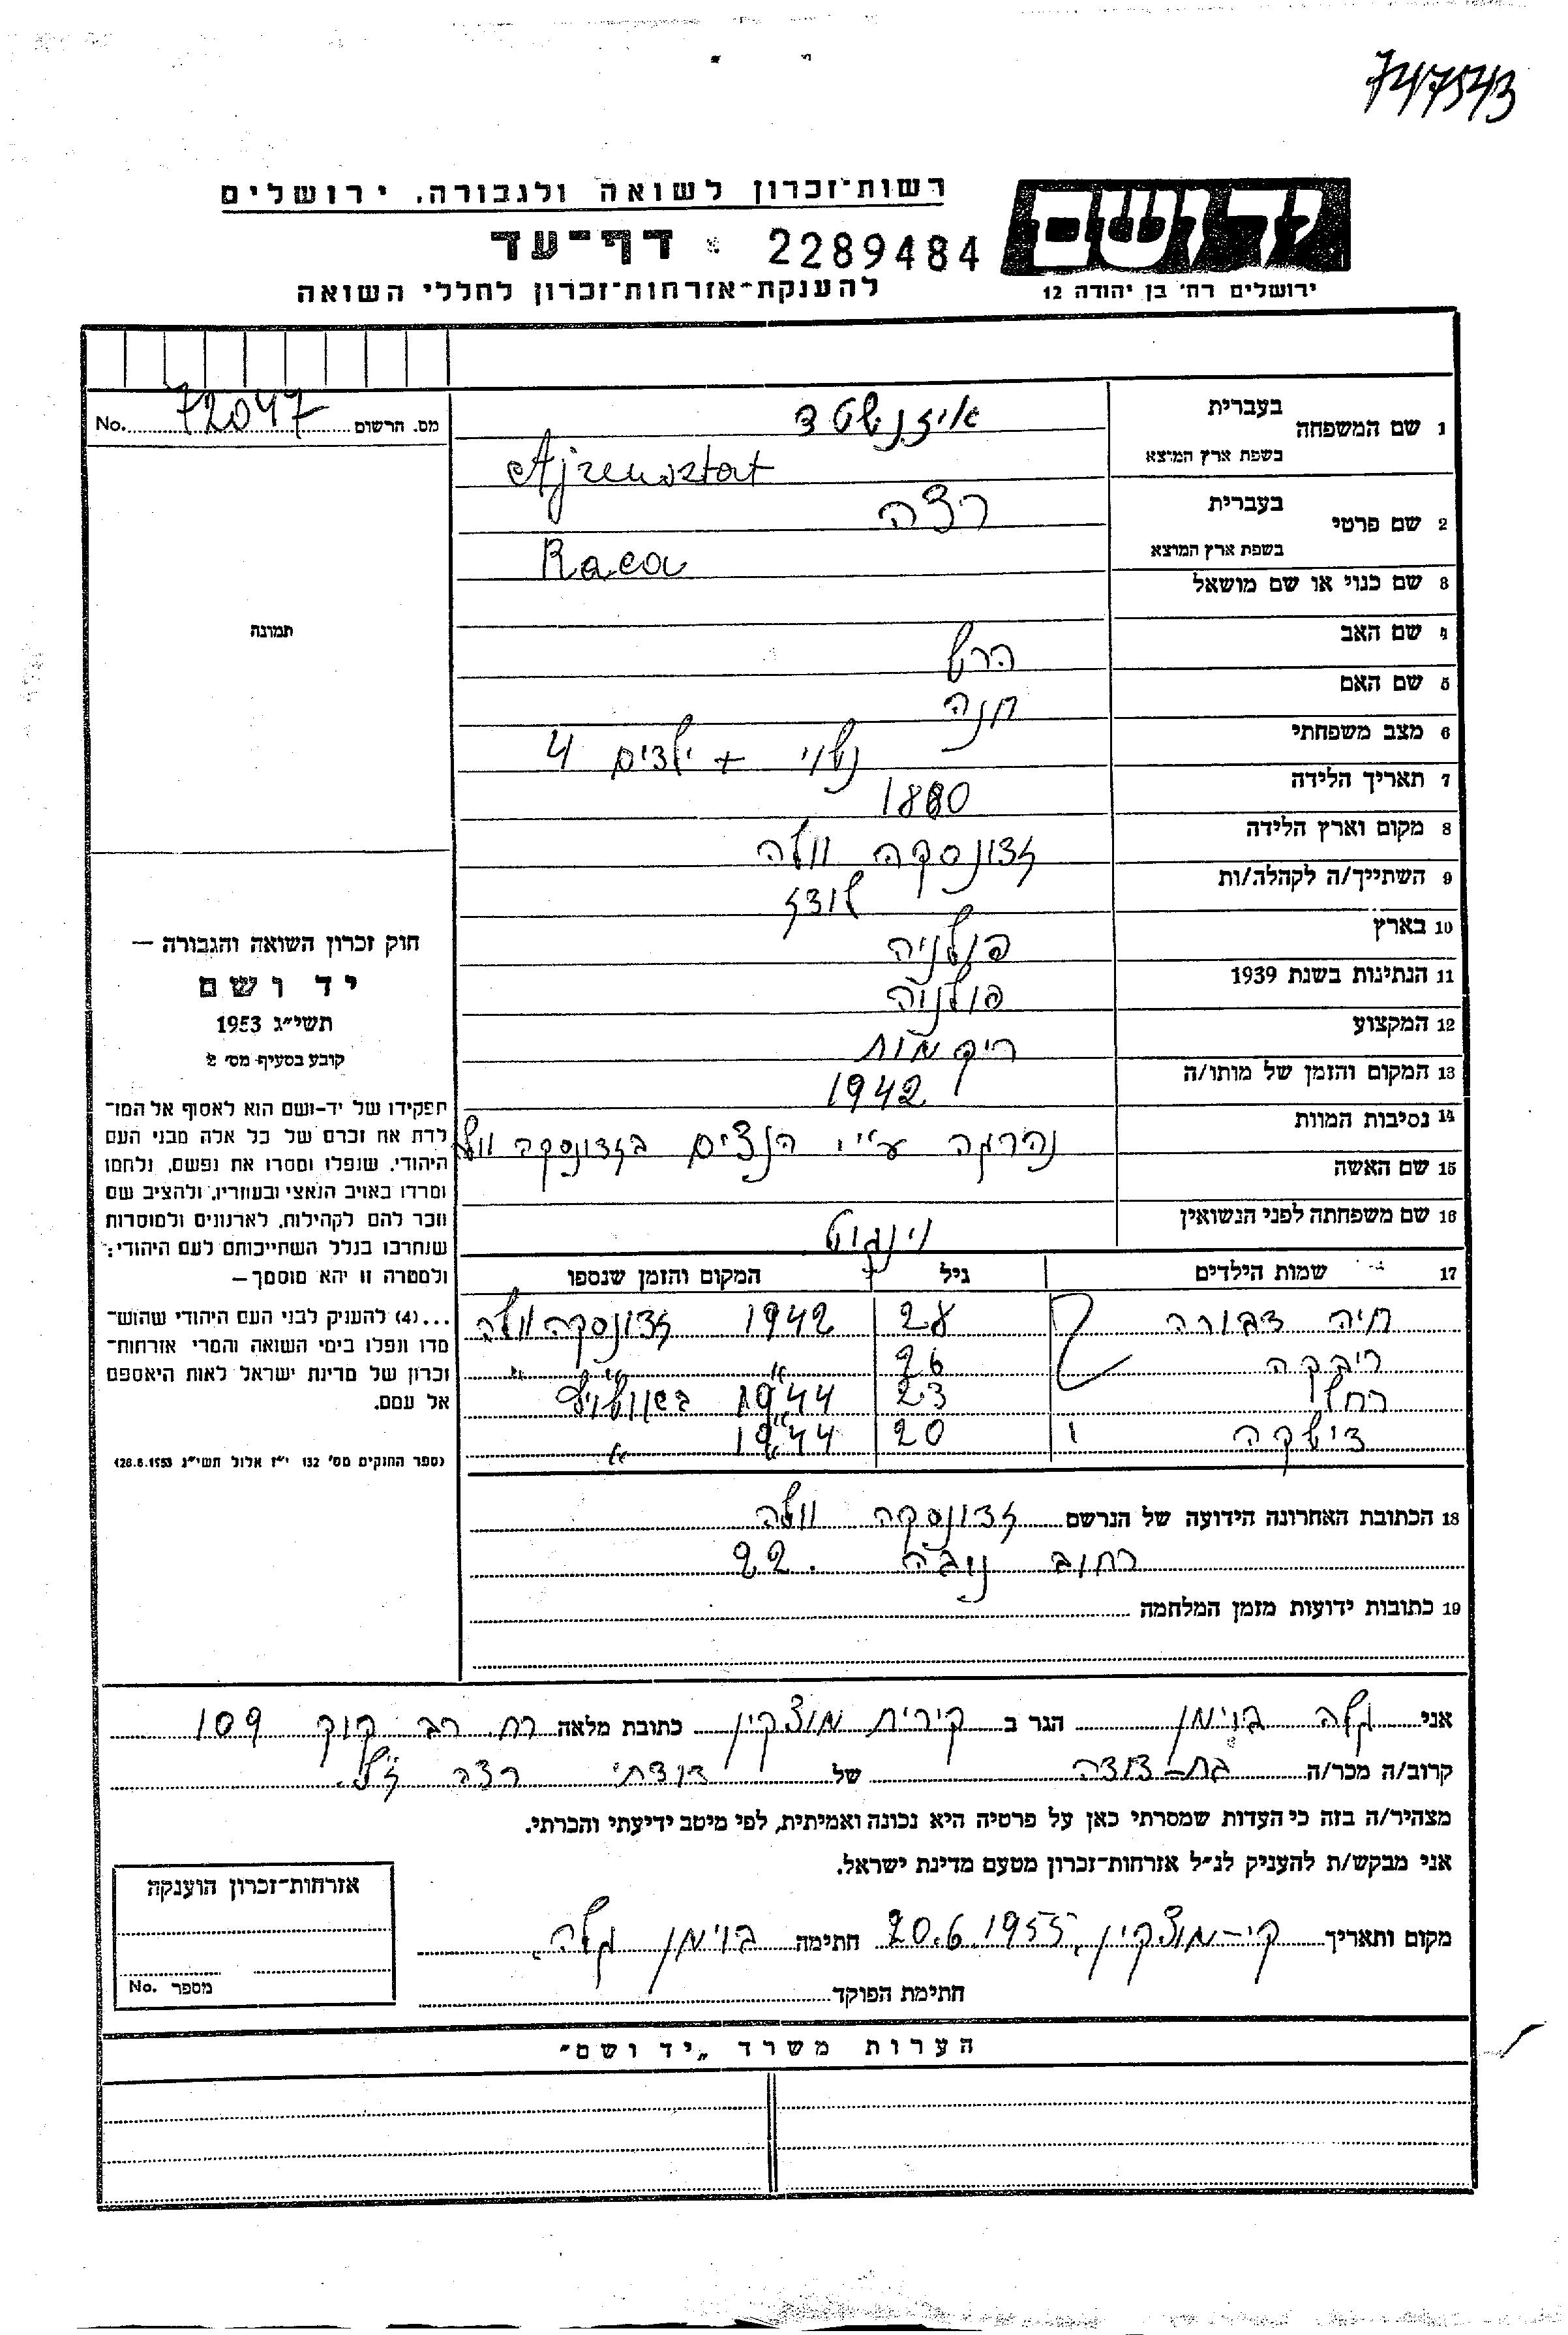 747543
רשות־זכרון לשואה ולגבורה, ירושלים
יד ושם
דף־עד 2289484
ירושלים רח' בן יהודה 12
להענקת־אזרחות־זכרון לחללי השואה
מס. הרשום 72047 No.
1 שם המשפחה בעברית אייזנשטד
בשפת ארץ המוצא Ajzensztat
2 שם פרטי בעברית רצה
בשפת ארץ המוצא Raca
3 שם כנוי או שם מושאל
4 שם האב הרש
5 שם האם חנה
6 מצב משפחתי נשוי + ילדים 4
7 תאריך הלידה 1880
8 מקום וארץ הלידה זדונסקה וולה
9 השתייך/ה לקהלה/ות לודז
10 בארץ פולניה
11 הנתינות בשנת 1939 פולניה
12 המקצוע ריקמות
13 המקום והזמן של מותו/ה 1942
14 נסיבות המוות נהרגה ע"י הנצים בזדונסקה וולה
15 שם האשה
16 שם משפחתה לפני הנשואין
17 שמות הילדים גיל המקום והזמן שנספו
חיה דבורה 28 1942 זדונסקה וולה
ריבקה 26 " "
רחל 23 1944 באושויץ
דישקה 20 1944 "
18 הכתובת האחרונה הידועה של הנרשם זדונסקה וולה
רחוב 22
19 כתובות ידועות מזמן המלחמה
תמונה
חוק זכרון השואה והגבורה —
יד ושם
תשי"ג 1953
קובע בסעיף מס' 2
תפקידו של יד-ושם הוא לאסוף אל המו־
לדת את זכרם של כל אלה מבני העם
היהודי, שנפלו ומסרו את נפשם, נלחמו
ומרדו באויב הנאצי ובעוזריו, ולהציב שם
וזכר להם לקהילות, לארגונים ולמוסדות
שנחרבו בגלל השתייכותם לעם היהודי;
ולמטרה זו יהא מוסמך—
...(4) להעניק לבני העם היהודי שהוש־
מדו ונפלו בימי השואה והמרי אזרחות־
זכרון של מדינת ישראל לאות היאספם
אל עמם.
(ספר החוקים מס' 132 י"ז אלול תשי"ג 28.8.1953)
אני גלה בוימן הגר ב קירית מוצקין כתובת מלאה רח. רב קוק 109
קרוב/ה מכר/ה בת-דודה של דודתי רצה ז"ל.
מצהיר/ה בזה כי העדות שמסרתי כאן על פרטיה היא נכונה ואמיתית, לפי מיטב ידיעתי והכרתי.
אני מבקש/ת להעניק לנ"ל אזרחות־זכרון מטעם מדינת ישראל.
מקום ותאריך קי-מוצקין, 20.6.1955 חתימה בוימן גלה.
חתימת הפוקד
אזרחות־זכרון הוענקה
מספר No.
הערות משרד „יד ושם"